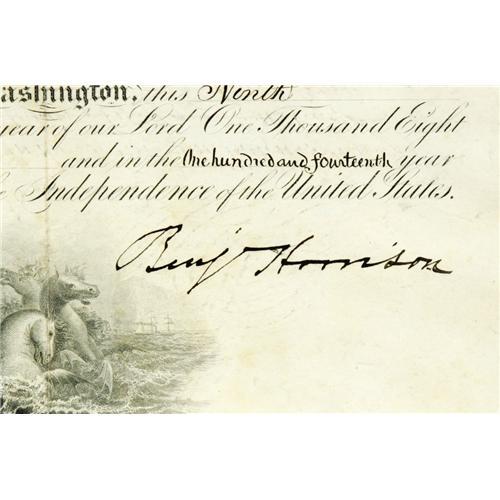 ashington, this Ninth
year of our Lord One Thousand Eight
and in the One hundred and fourteenth year
Independence of the United States.
Benj Harrison